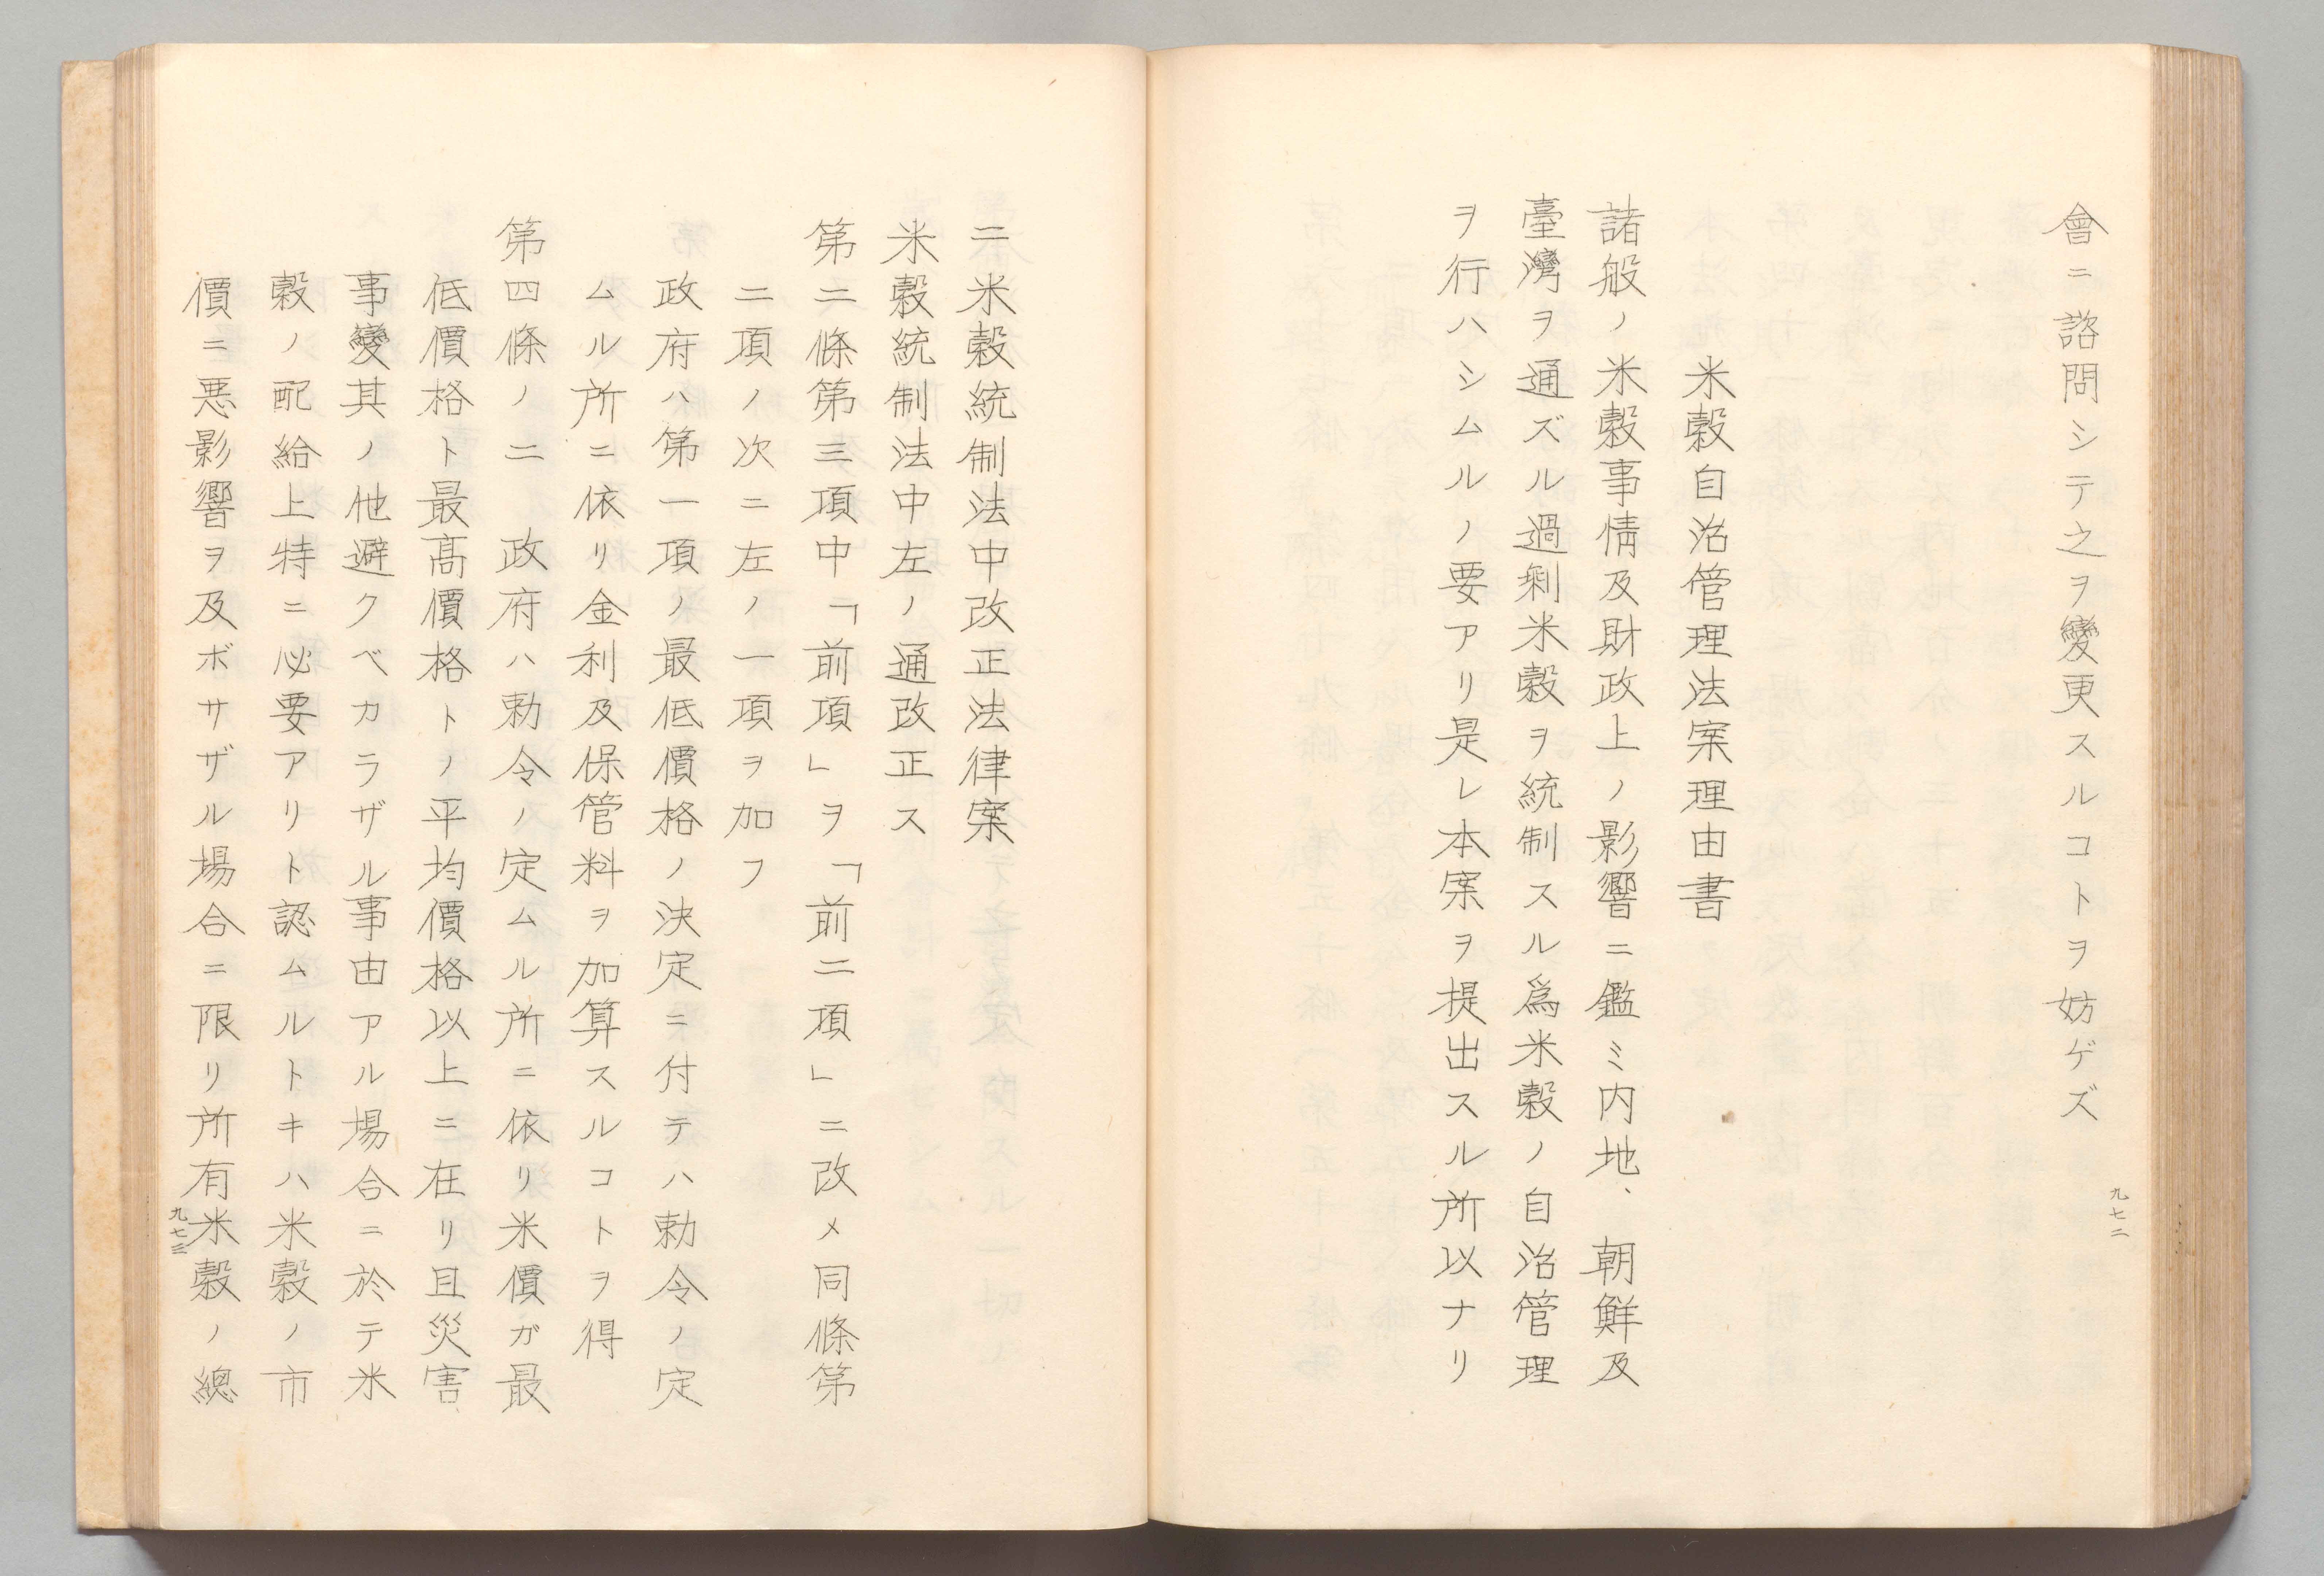 會ニ諮問シテ之ヲ變更スルコトヲ妨ゲズ
米穀自治管理法案理由書
諸般ノ米穀事情及財政上ノ影響ニ鑑ミ内地、朝鮮及
臺灣ヲ通ズル過剰米穀ヲ統制スル爲米穀ノ自治管理
ヲ行ハシムルノ要アリ是レ本案ヲ提出スル所以ナリ
九七二
二米穀統制法中改正法律案
米穀統制法中左ノ通改正ス
第二條第三項中「前項」ヲ「前二項」ニ改メ同條第
二項ノ次ニ左ノ一項ヲ加フ
政府ハ第一項ノ最低價格ノ決定ニ付テハ勅令ノ定
ムル所ニ依リ金利及保管料ヲ加算スルコトヲ得
第四條ノ二 政府ハ勅令ノ定ムル所ニ依リ米價ガ最
低價格ト最高價格トノ平均價格以上ニ在リ且災害
事變其ノ他避クベカラザル事由アル場合ニ於テ米
穀ノ配給上特ニ必要アリト認ムルトキハ米穀ノ市
價ニ悪影響ヲ及ボサザル場合ニ限リ所有米穀ノ總
九七三